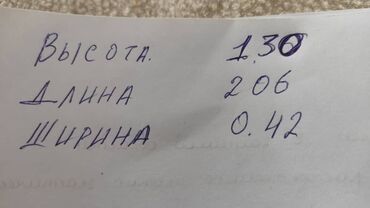 Высота. 1.30
Длина 206
Ширина 0.42